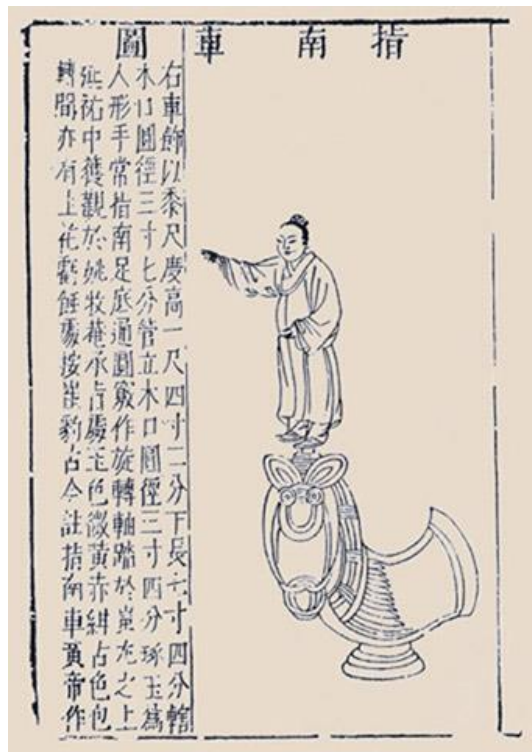 指南車圖
右車飾以黍尺慶高一尺四寸二分下長七寸四分轄
木口圓徑三寸七分管立木口圓徑三寸四分琢玉為
人形手常指南足底通圓竅作旋轉軸踏於蚩尤之上
延祐中獲觀於姚牧菴承旨處玉色微黃赤紺古色包
轉間亦有上花虧蝕處按崔豹古今註指南車黃帝作